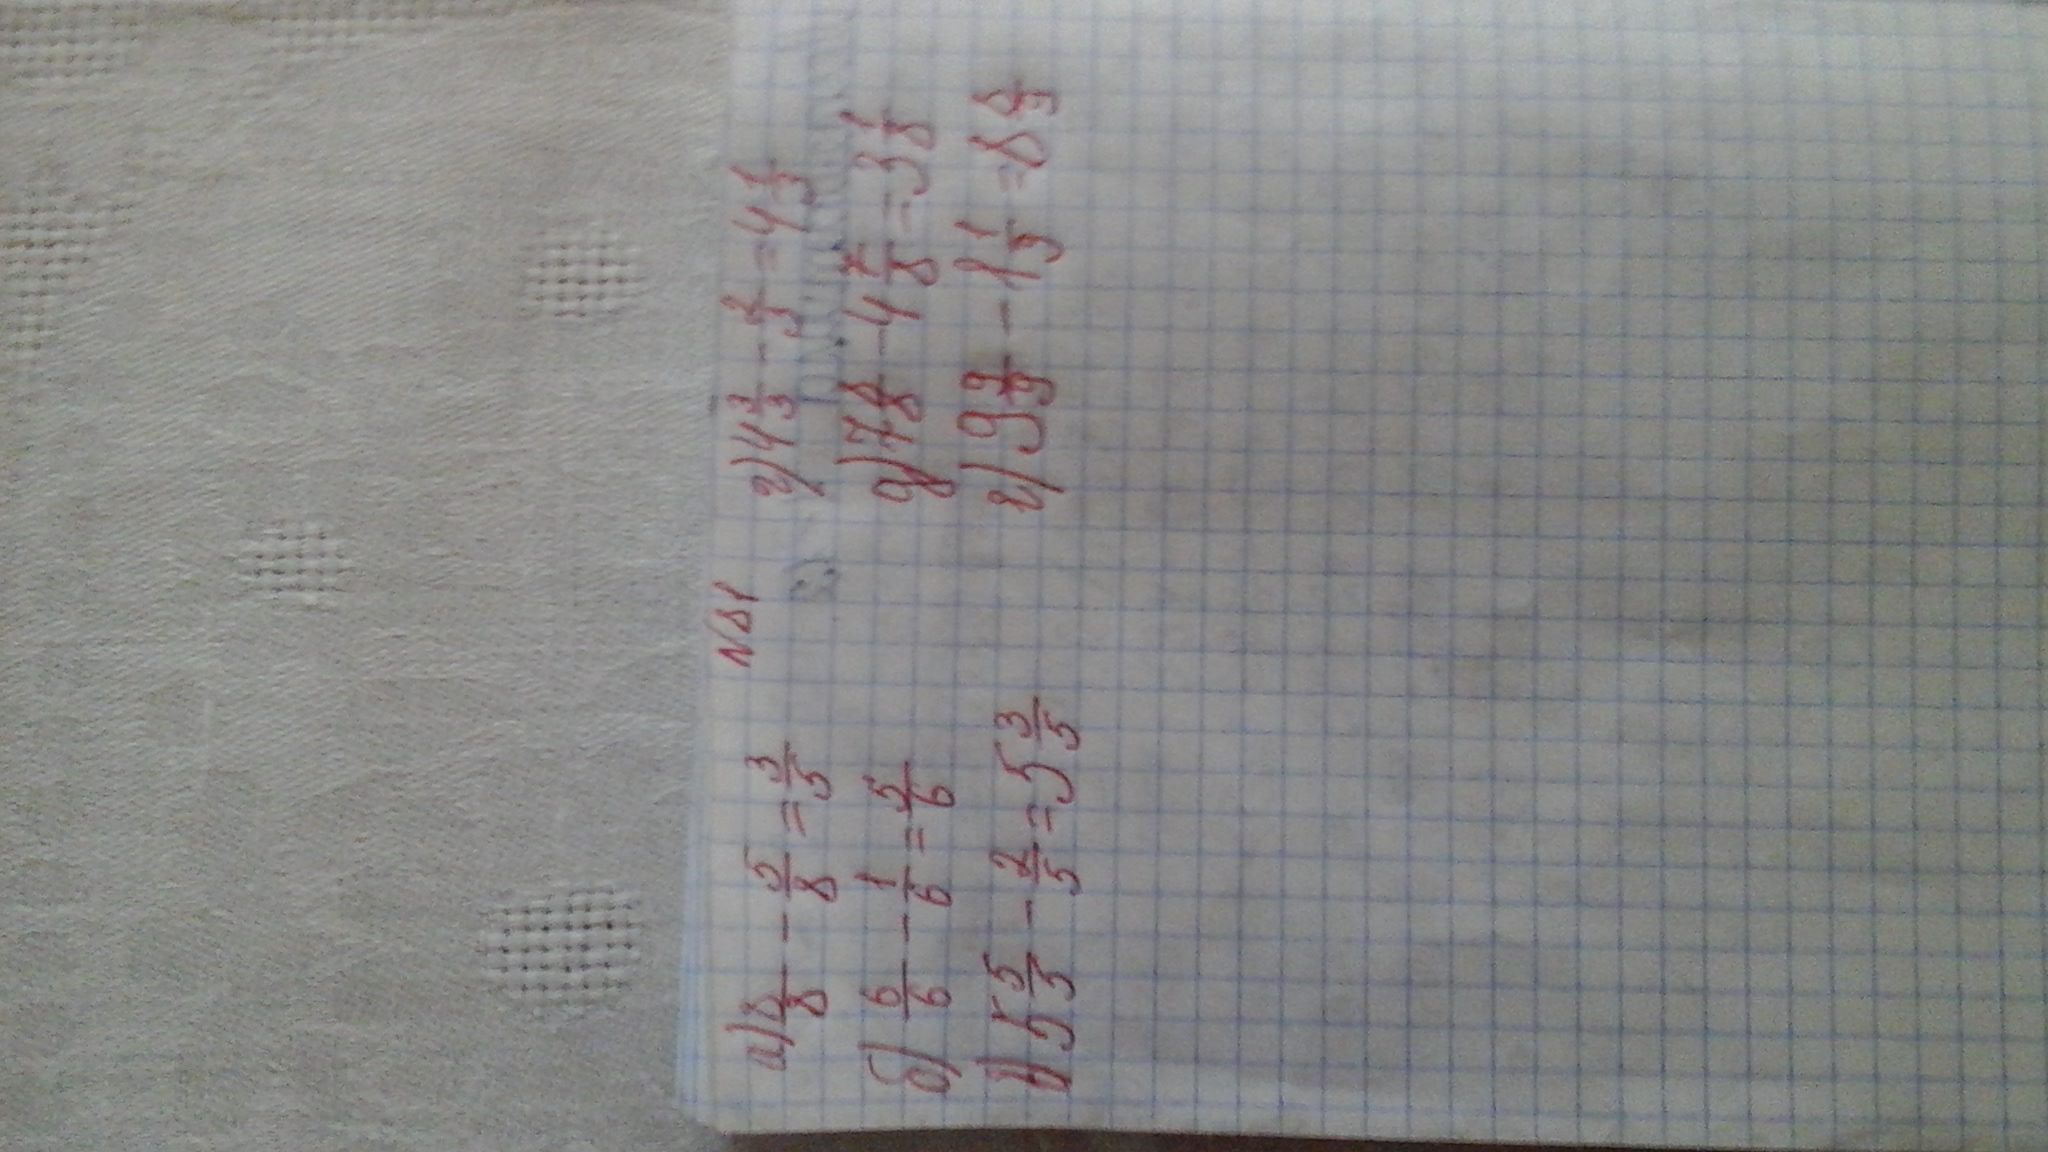 N81
а) 8/8 - 5/8 = 3/5
б) 6/6 - 1/6 = 5/6
в) 5 5/5 - 2/5 = 5 3/5
г) 4 3/3 - 2/3 = 4 1/3
д) 7 8/8 - 4 7/8 = 3 1/8
г) 9 9/9 - 1 1/9 = 8 8/9